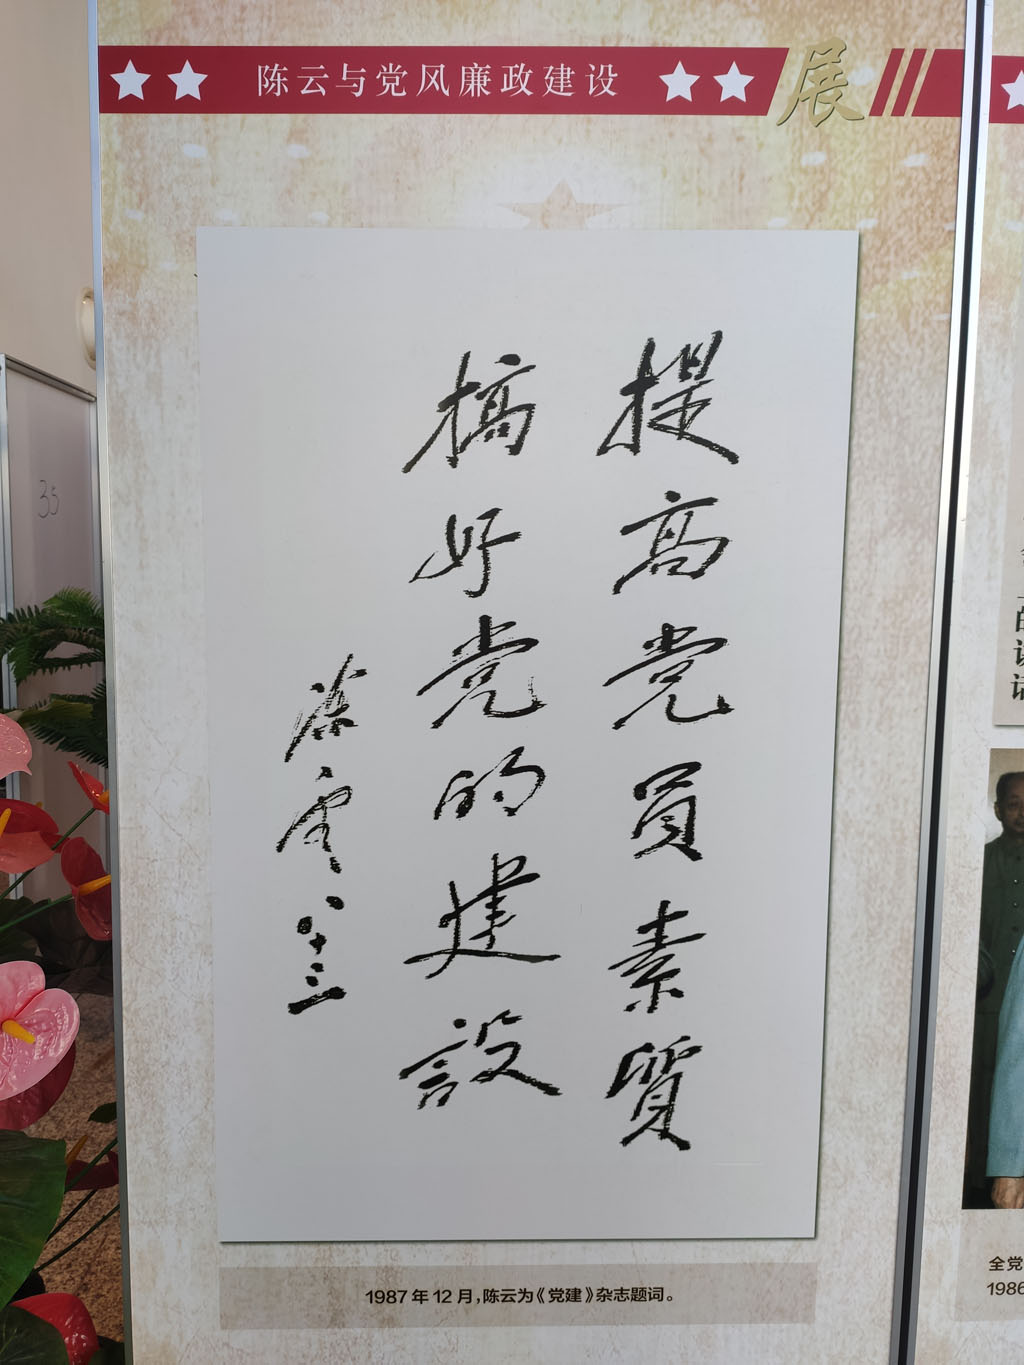 陈云与党风廉政建设
展
提高党员素質
搞好党的建設
陈雲
八十三
1987年12月,陈云为《党建》杂志题词。
35
的
全党
1986